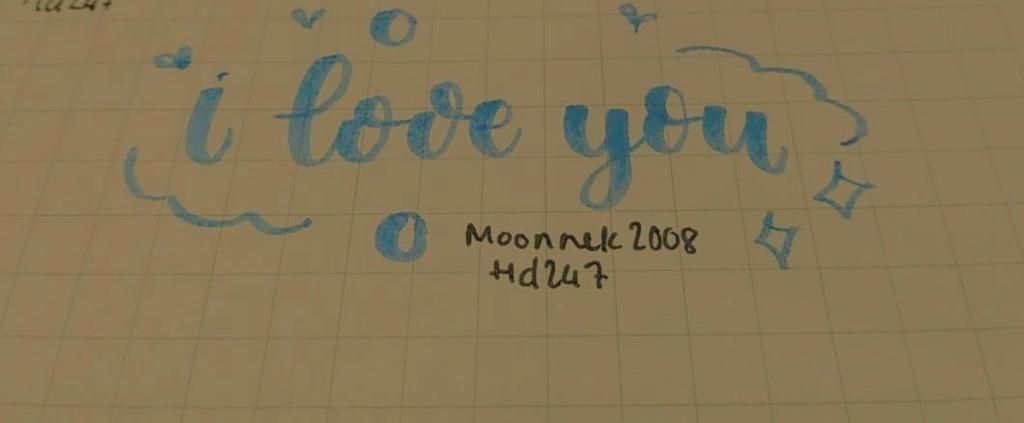 i love you
Moonnek 2008
Hd247